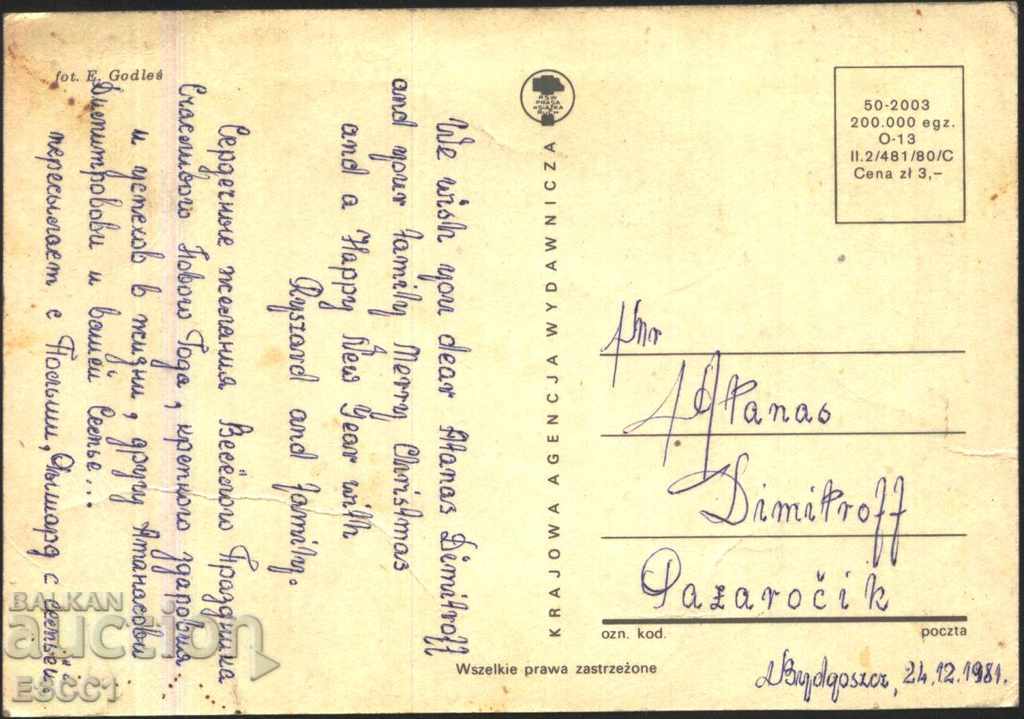 fot. E. Godleś
We wish you dear Atanas Dimitroff
and your family Merry Christmas
and a Happy New Year with
Ryszard and family.
Сердечные желания Весёлого Праздника
Счасливого Нового Года, крепкого здаровия
и успехов в жизни, другу Атанасови
Димитровови и вашей Семье...
пересылает с Польши, Рышард с семьёй.
RSW
PRASA
KSIĄŻKA
RUCH
KRAJOWA AGENCJA WYDAWNICZA
50-2003
200.000 egz.
O-13
II.2/481/80/C
Cena zł 3,–
Mr
Atanas
Dimitroff
Pazaročik
ozn. kod. poczta
Wszelkie prawa zastrzeżone
Bydgoszcz, 24.12.1981.
BALKAN
auction
ESCC1